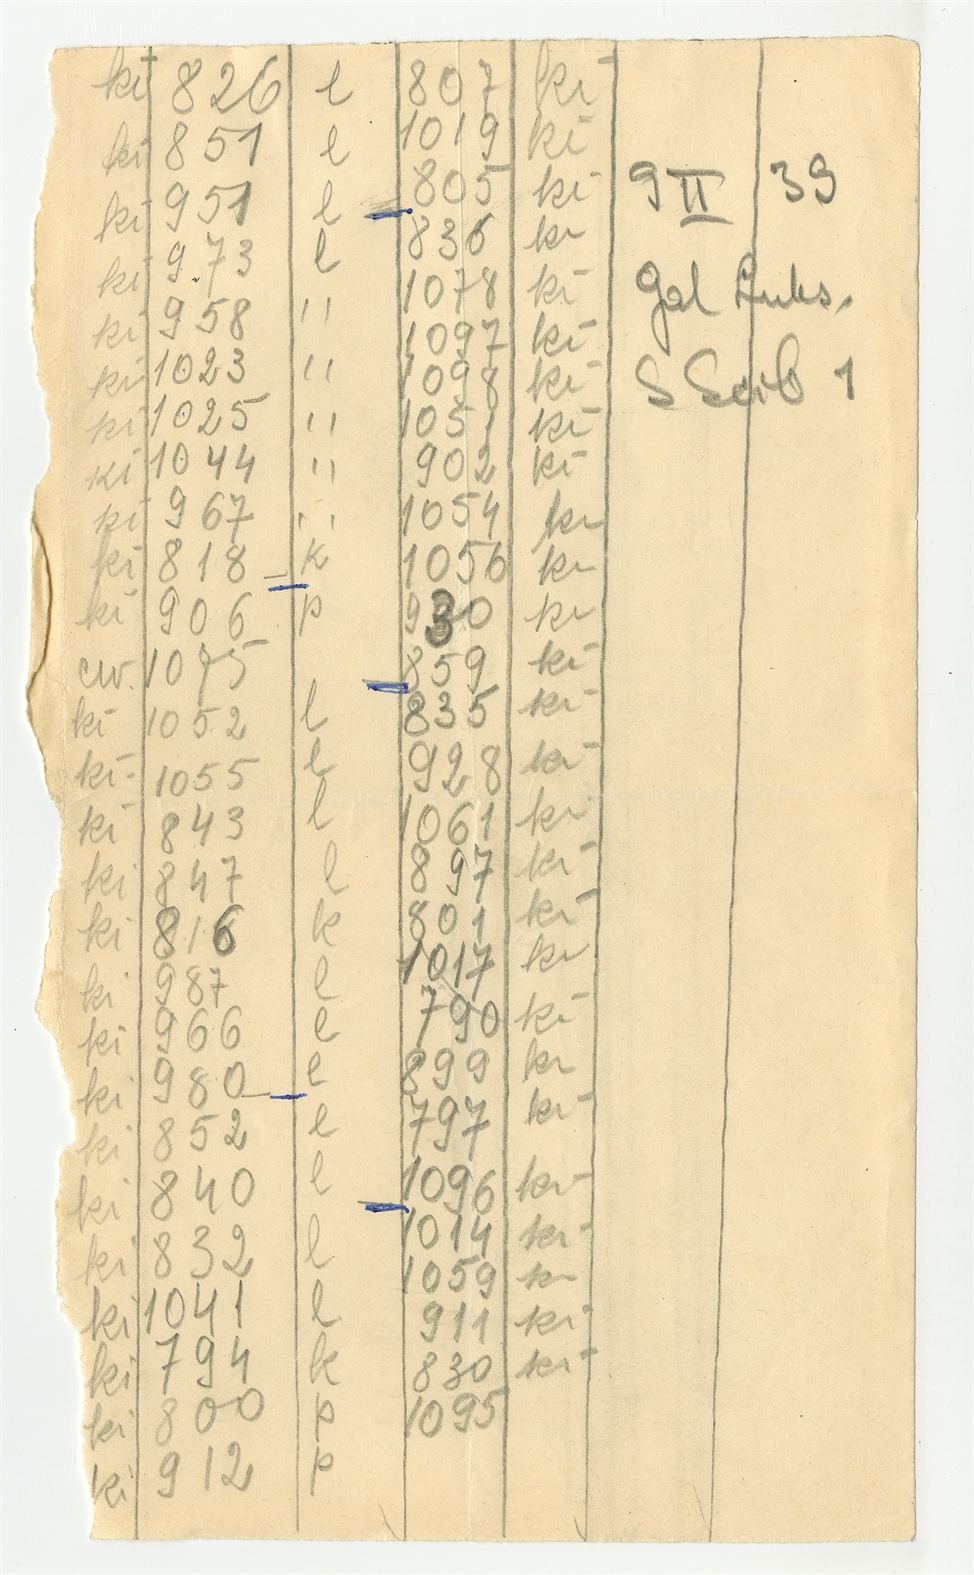 ki 826 l 807 ki
ki 851 l 1019 ki
ki 951 l 805 ki 9 II 39
ki 973 l 836 ki
ki 958 " 1078 ki Gal Luks.
ki 1023 " 1097 ki
ki 1025 " 1098 ki S 1
ki 1044 " 1051 ki
ki 967 " 902 ki
ki 818 k 1054 ki
ki 906 p 1056 ki
cw. 1075 930 ki
ki 1052 l 859 ki
ki 1055 l 835 ki
ki 843 l 928 ki
ki 847 l 1061 ki
ki 816 k 897 ki
ki 987 l 801 ki
ki 966 l 1017 ki
ki 980 l 790 ki
ki 852 l 899 ki
ki 840 l 797 ki
ki 832 l 1096 ki
ki 1041 l 1014 ki
ki 794 k 1059 ki
ki 800 p 911 ki
ki 912 p 830 ki
1095